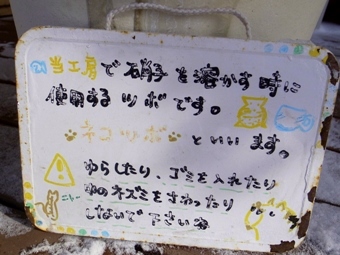 当工房で硝子を溶かす時に
使用するツボです。
ネコツボといいます。
ゆらしたり、ゴミを入れたり
中のネズミをさわったり
しないで下さいね
ニャー